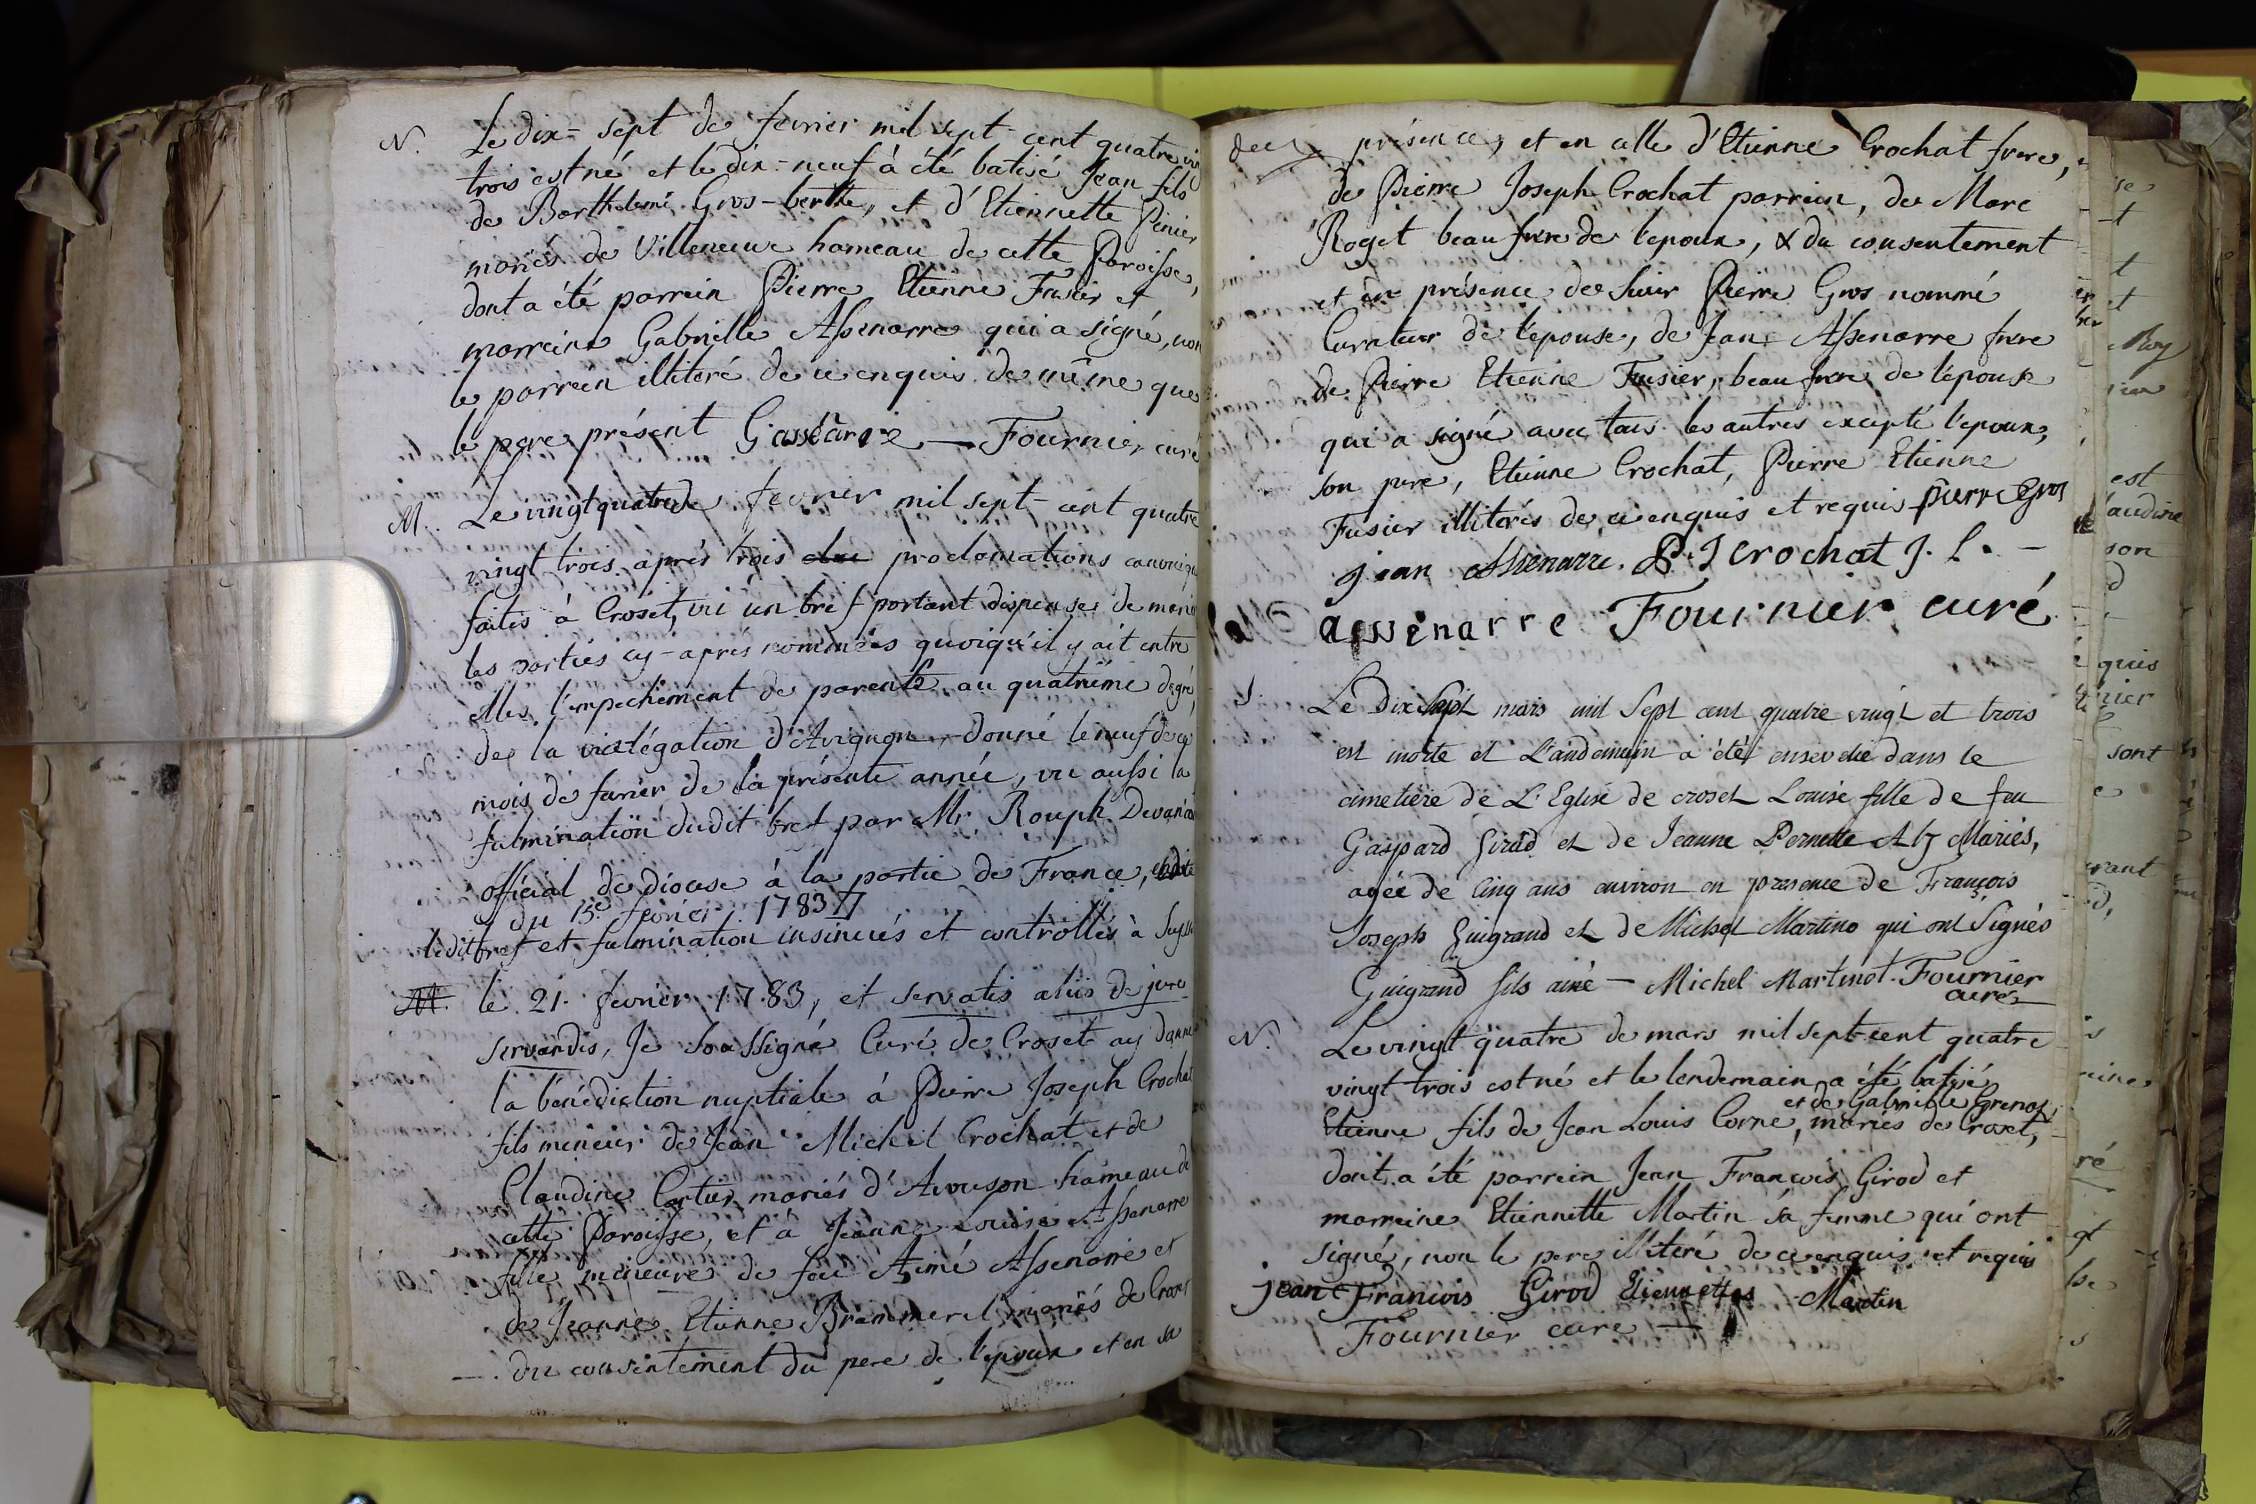 N. Le dix-sept de fevrier mil sept-cent quatre
trois est né et le dix-neuf à été batisé Jean fils
de Barthelemi Gros-berthe, et d'Etiennette Pinier
mariés de Villeneuve hameau de cette Paroisse,
dont a été parrein Pierre Etienne Fusier et
marreine Gabrielle Assenarre qui a signé, non
le parrein illiteré de ce enquis de même que
le pere présent Gassenare — Fournier curé
M. Le vingtquatre de fevrier mil sept-cent quatre
vingt trois après trois proclamations
faites à Croset, vû un bref portant dispense de
les parties cy-après nommées quoiqu'il y ait entre
elles l'empechement de parenté au quatrième degré,
de la vicelégation d'Avignon, donné le neuf de ce
mois de fevrier de la présente année, vu aussi la
fulmination dudit bref par Mr Rouph
official de diocese à la partie de France,
du 15e fevrier 1783
ledit bref et fulmination insinués et controllés à
M. le 21. fevrier 1783, et servatis aliis de jure
servandis, Je soussigné Curé de Croset ay donné
la bénédiction nuptiale à Pierre Joseph Crochat
fils mineur de Jean Michel Crochat et de
Claudine mariés d'Avouson hameau de
cette Paroisse, et à Jeanne Louise Assenarre
fille mineure de feu Aimé Assenarre et
de Jeanne Etienne mariés de Croset
du consentement du pere de l'epoux et en sa
présence, et en celle d'Etienne Crochat frere,
de Pierre Joseph Crochat parrein, de Marc
Roget beau frere de l'epoux, & du consentement
et en présence de Sieur Pierre Gros nommé
Curateur de l'epouse, de Jean Assenarre frere
de Pierre Etienne Fusier, beau frere de l'épouse
qui a signé avec tous les autres excepté l'epoux,
son pere, Etienne Crochat, Pierre Etienne
Fusier illiterés de ce enquis et requis pierre Gros
jean assenarre. P. J Crochat J. L. —
assenarre Fournier curé
S. Le Dix Sept mars mil Sept cent quatre vingt et trois
est morte et L'andemain a été ensevelie dans le
cimetière de L'Eglise de croset Louise fille de feu
Gaspard Girod et de Jeanne Pernette Mariés,
agée de Cinq ans environ en presence de François
Joseph Guigrand et de Michel Martino qui ont Signés
Guigrand fils ainé — Michel Martinot. Fournier
curé
N. Le vingt quatre de mars mil sept-cent quatre
vingt trois est né et le lendemain a été batisé
et de Gabrielle Grenot,
Etienne fils de Jean Louis Corne, mariés de Croset,
dont a été parrein Jean François Girod et
marreine Etiennette Martin sa femme qui ont
signé, non le pere illiteré de ce enquis et requis
jean François Girod Etiennette Martin
Fournier curé —